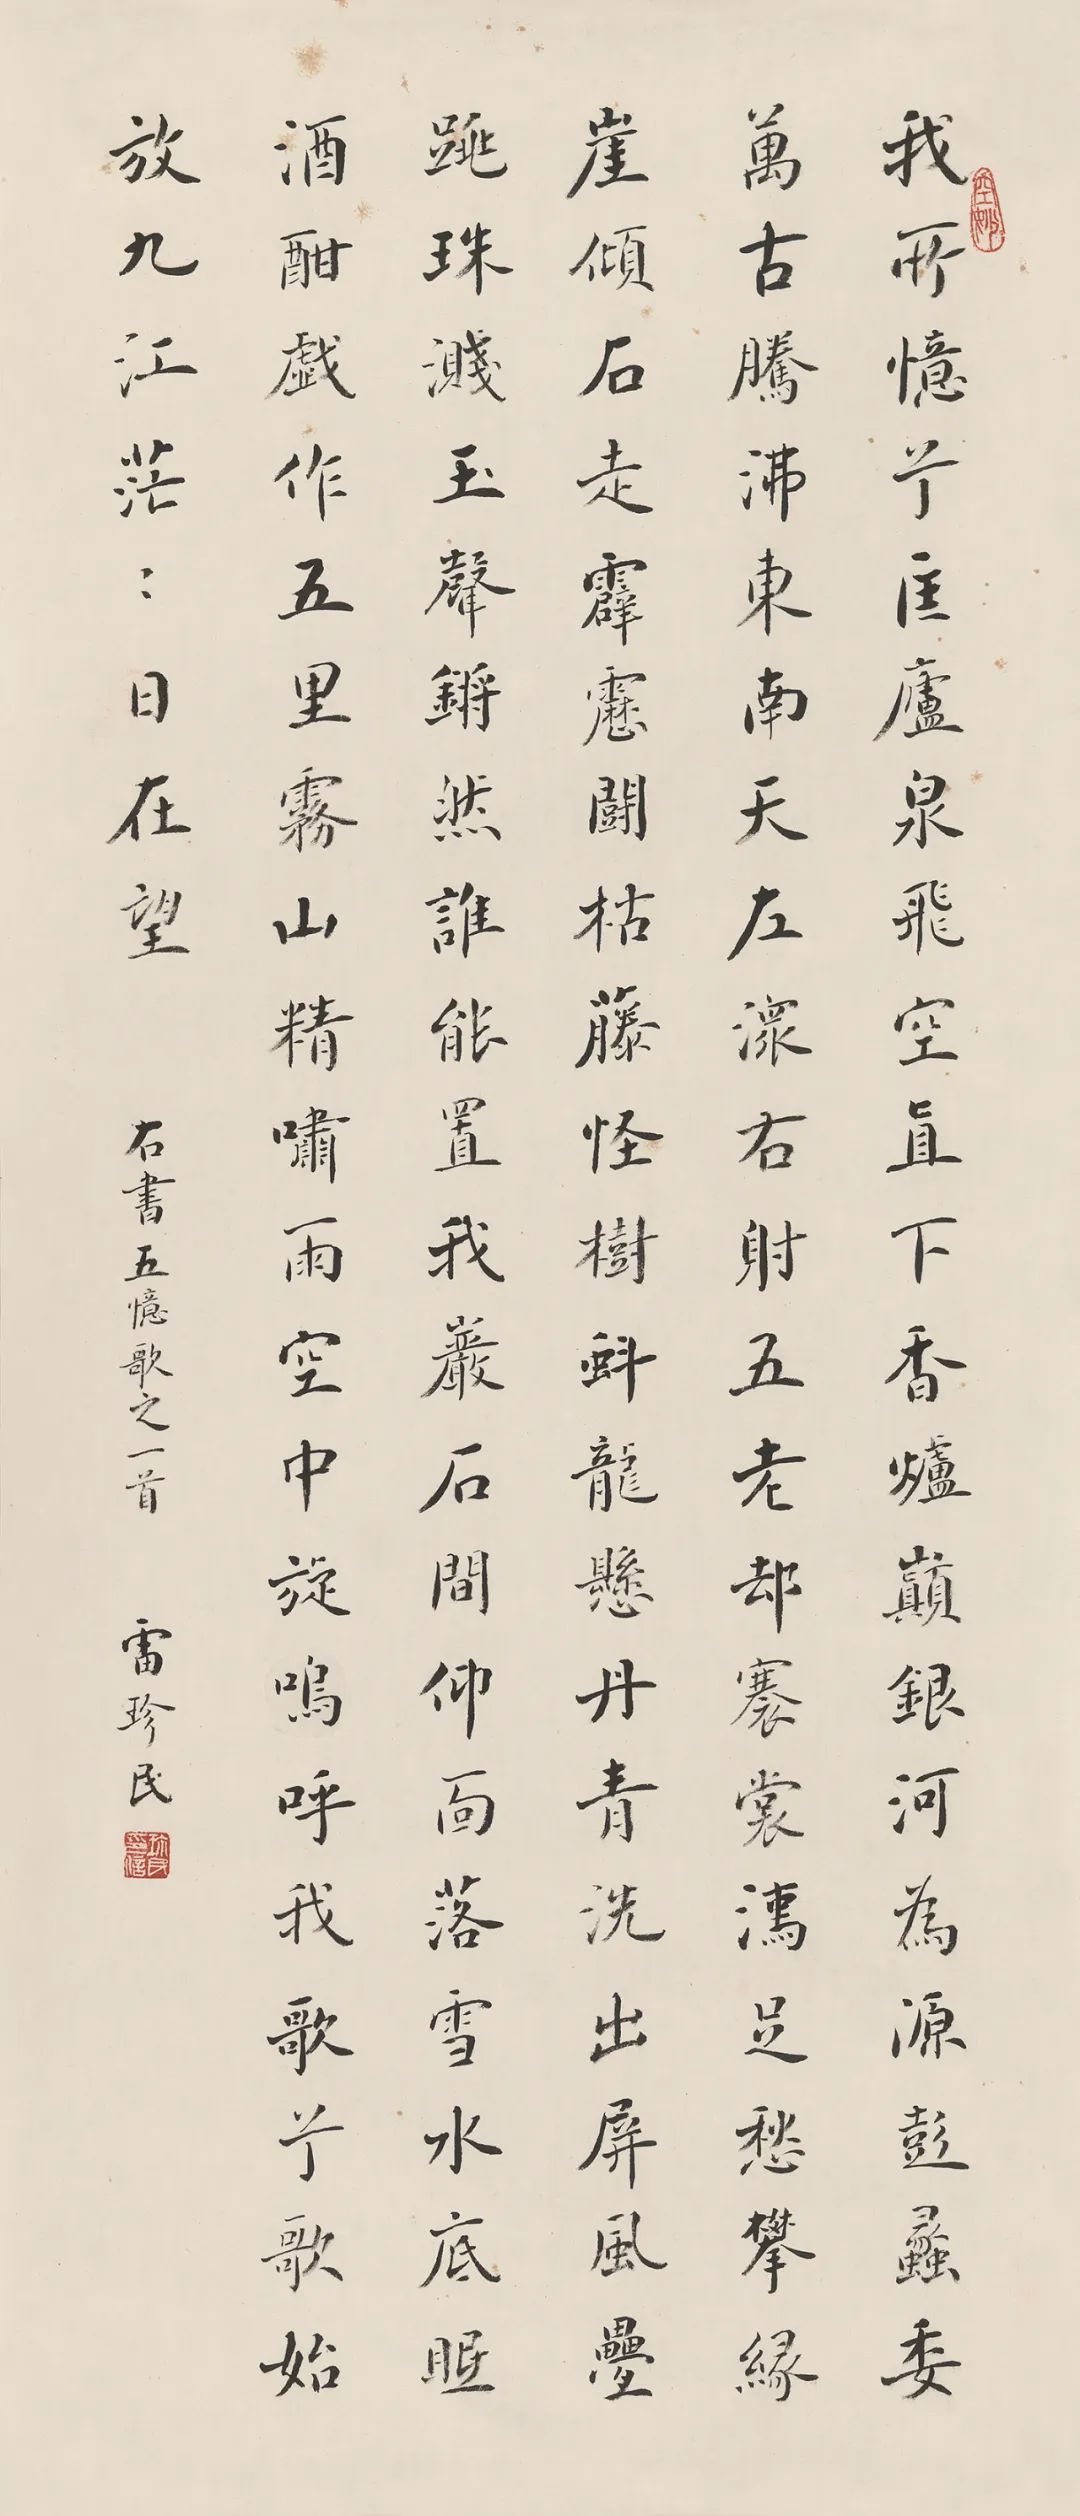 我所憶兮匡廬泉飛空直下香爐巔銀河為源彭蠡委
萬古騰沸東南天左瀠右射五老却褰裳濡足愁攀緣
崖傾石走霹靂鬪枯藤怪樹蚪龍懸丹青洗出屏風疊
跳珠濺玉聲鏘然誰能置我巖石間仰面落雪水底眠
酒酣戯作五里霧山精嘯雨空中旋嗚呼我歌兮歌始
放九江茫〻日在望
右書五憶歌之一首
雷珍民
珍民印信